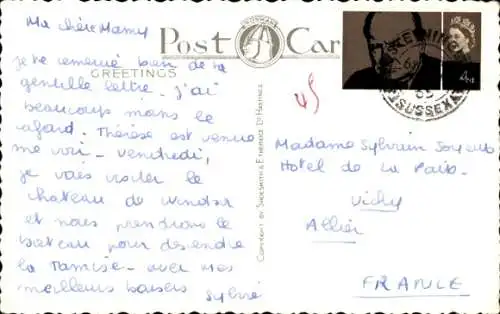 Ma chère Mamy
je te remercie bien de ta
gentille lettre. j'ai
beaucoup moins le
cafard. Thérèse est venue
me voir - vendredi,
je vais visiter le
chateau de Windsor
et nous prendrons le
bateau pour descendre
la Tamise - avec mes
meilleurs baisers
Sylvie
Post Car
GREETINGS
COPYRIGHT BY SHOESMITH & ETHERIDGE LTD HASTINGS
45
SUSSEX
Madame Sylvain
Hotel de La Paix.
Vichy
Allier
FRANCE